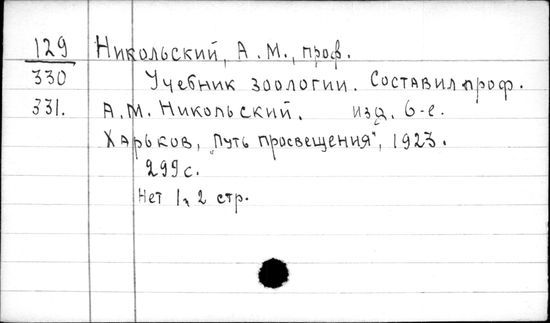 129 Никольский, А.М., проф.
330 Учебник зоологии. Составил проф.
331. А.М. Никольский. изд. 6-е.
Харьков, "Путь просвещения", 1923.
299 с.
Нет 1, 2 стр.